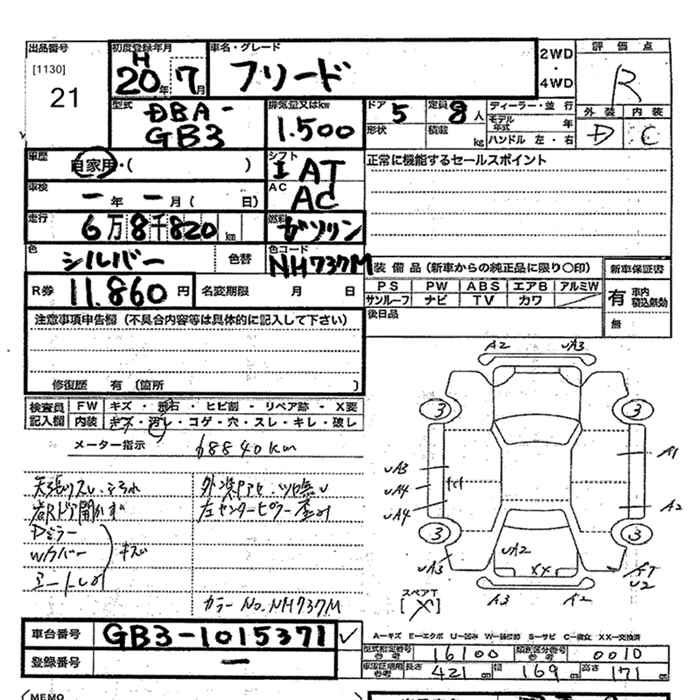 出品番号
[1130]
21
初度登録年月
H
20年 7月
車名・グレード
フリード
2WD
・
4WD
評価点
R
外装 内装
D C
型式
DBA-
GB3
排気量又はkw
1.500
ドア 5
形状
定員 8人
積載 kg
ディーラー・並行
モデル年式 年
ハンドル 左・右
車歴
自家用・( )
シフト
I AT
AC
AC
正常に機能するセールスポイント
車検
ー年 ー月( 日)
走行
6万8千820km
燃料
ガソリン
色
シルバー
色替
色コード
NH737M
R券
11.860円
名変期限 月 日
装備品(新車からの純正品に限り○印)
PS PW ABS エアB アルミW
サンルーフ ナビ TV カワ
後日品
新車保証書
有 車内積込無効
無
注意事項申告欄(不具合内容等は具体的に記入して下さい)
修復歴 有(箇所 )
検査員記入欄
FW キズ・飛石・ヒビ割・リペア跡・X要
内装 キズ・汚レ・コゲ・穴・スレ・キレ・破レ
メーター指示 68840km
天張りスレ・
Dミラー
Wカバー
キズ
左センターピラー
カラーNo.NH737M
A2 UA3
3 3
UA3 A1
UA4
UA4 A2
3 3
UA3 UA2 XX
U2
A3 A2
スペアT
[X]
車台番号
GB3-1015371
登録番号
ー
A-キズ E-エクボ U-凹み W-補修跡 S-サビ C-腐食 XX-交換済
型式指定番号参考 16100
類別区分番号参考 0010
車庫証明用参考 長さ 421cm 幅 169cm 高さ 171cm
(MEMO